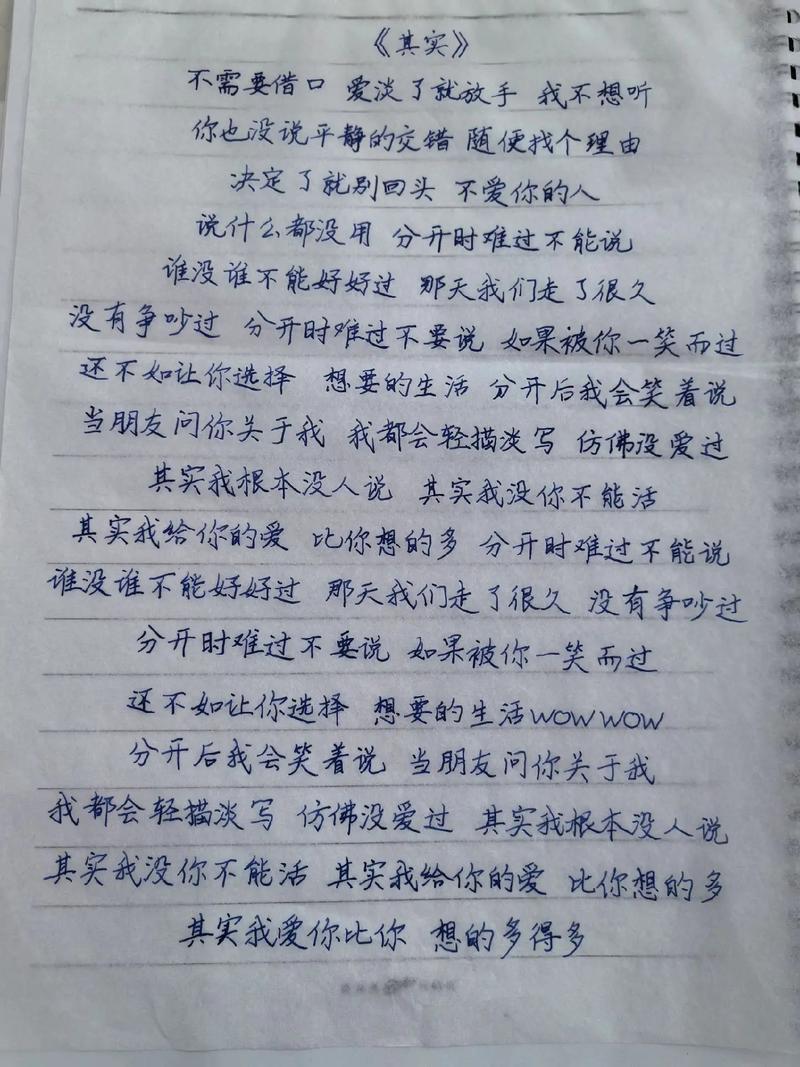 《其实》
不需要借口 爱淡了就放手 我不想听
你也没说平静的交错 随便找个理由
决定了就别回头 不爱你的人
说什么都没用 分开时难过不能说
谁没谁不能好好过 那天我们走了很久
没有争吵过 分开时难过不要说 如果被你一笑而过
还不如让你选择 想要的生活 分开后我会笑着说
当朋友问你关于我 我都会轻描淡写 仿佛没爱过
其实我根本没人说 其实我没你不能活
其实我给你的爱 比你想的多 分开时难过不能说
谁没谁不能好好过 那天我们走了很久 没有争吵过
分开时难过不要说 如果被你一笑而过
还不如让你选择 想要的生活WOWWOW
分开后我会笑着说 当朋友问你关于我
我都会轻描淡写 仿佛没爱过 其实我根本没人说
其实我没你不能活 其实我给你的爱 比你想的多
其实我爱你比你 想的多得多